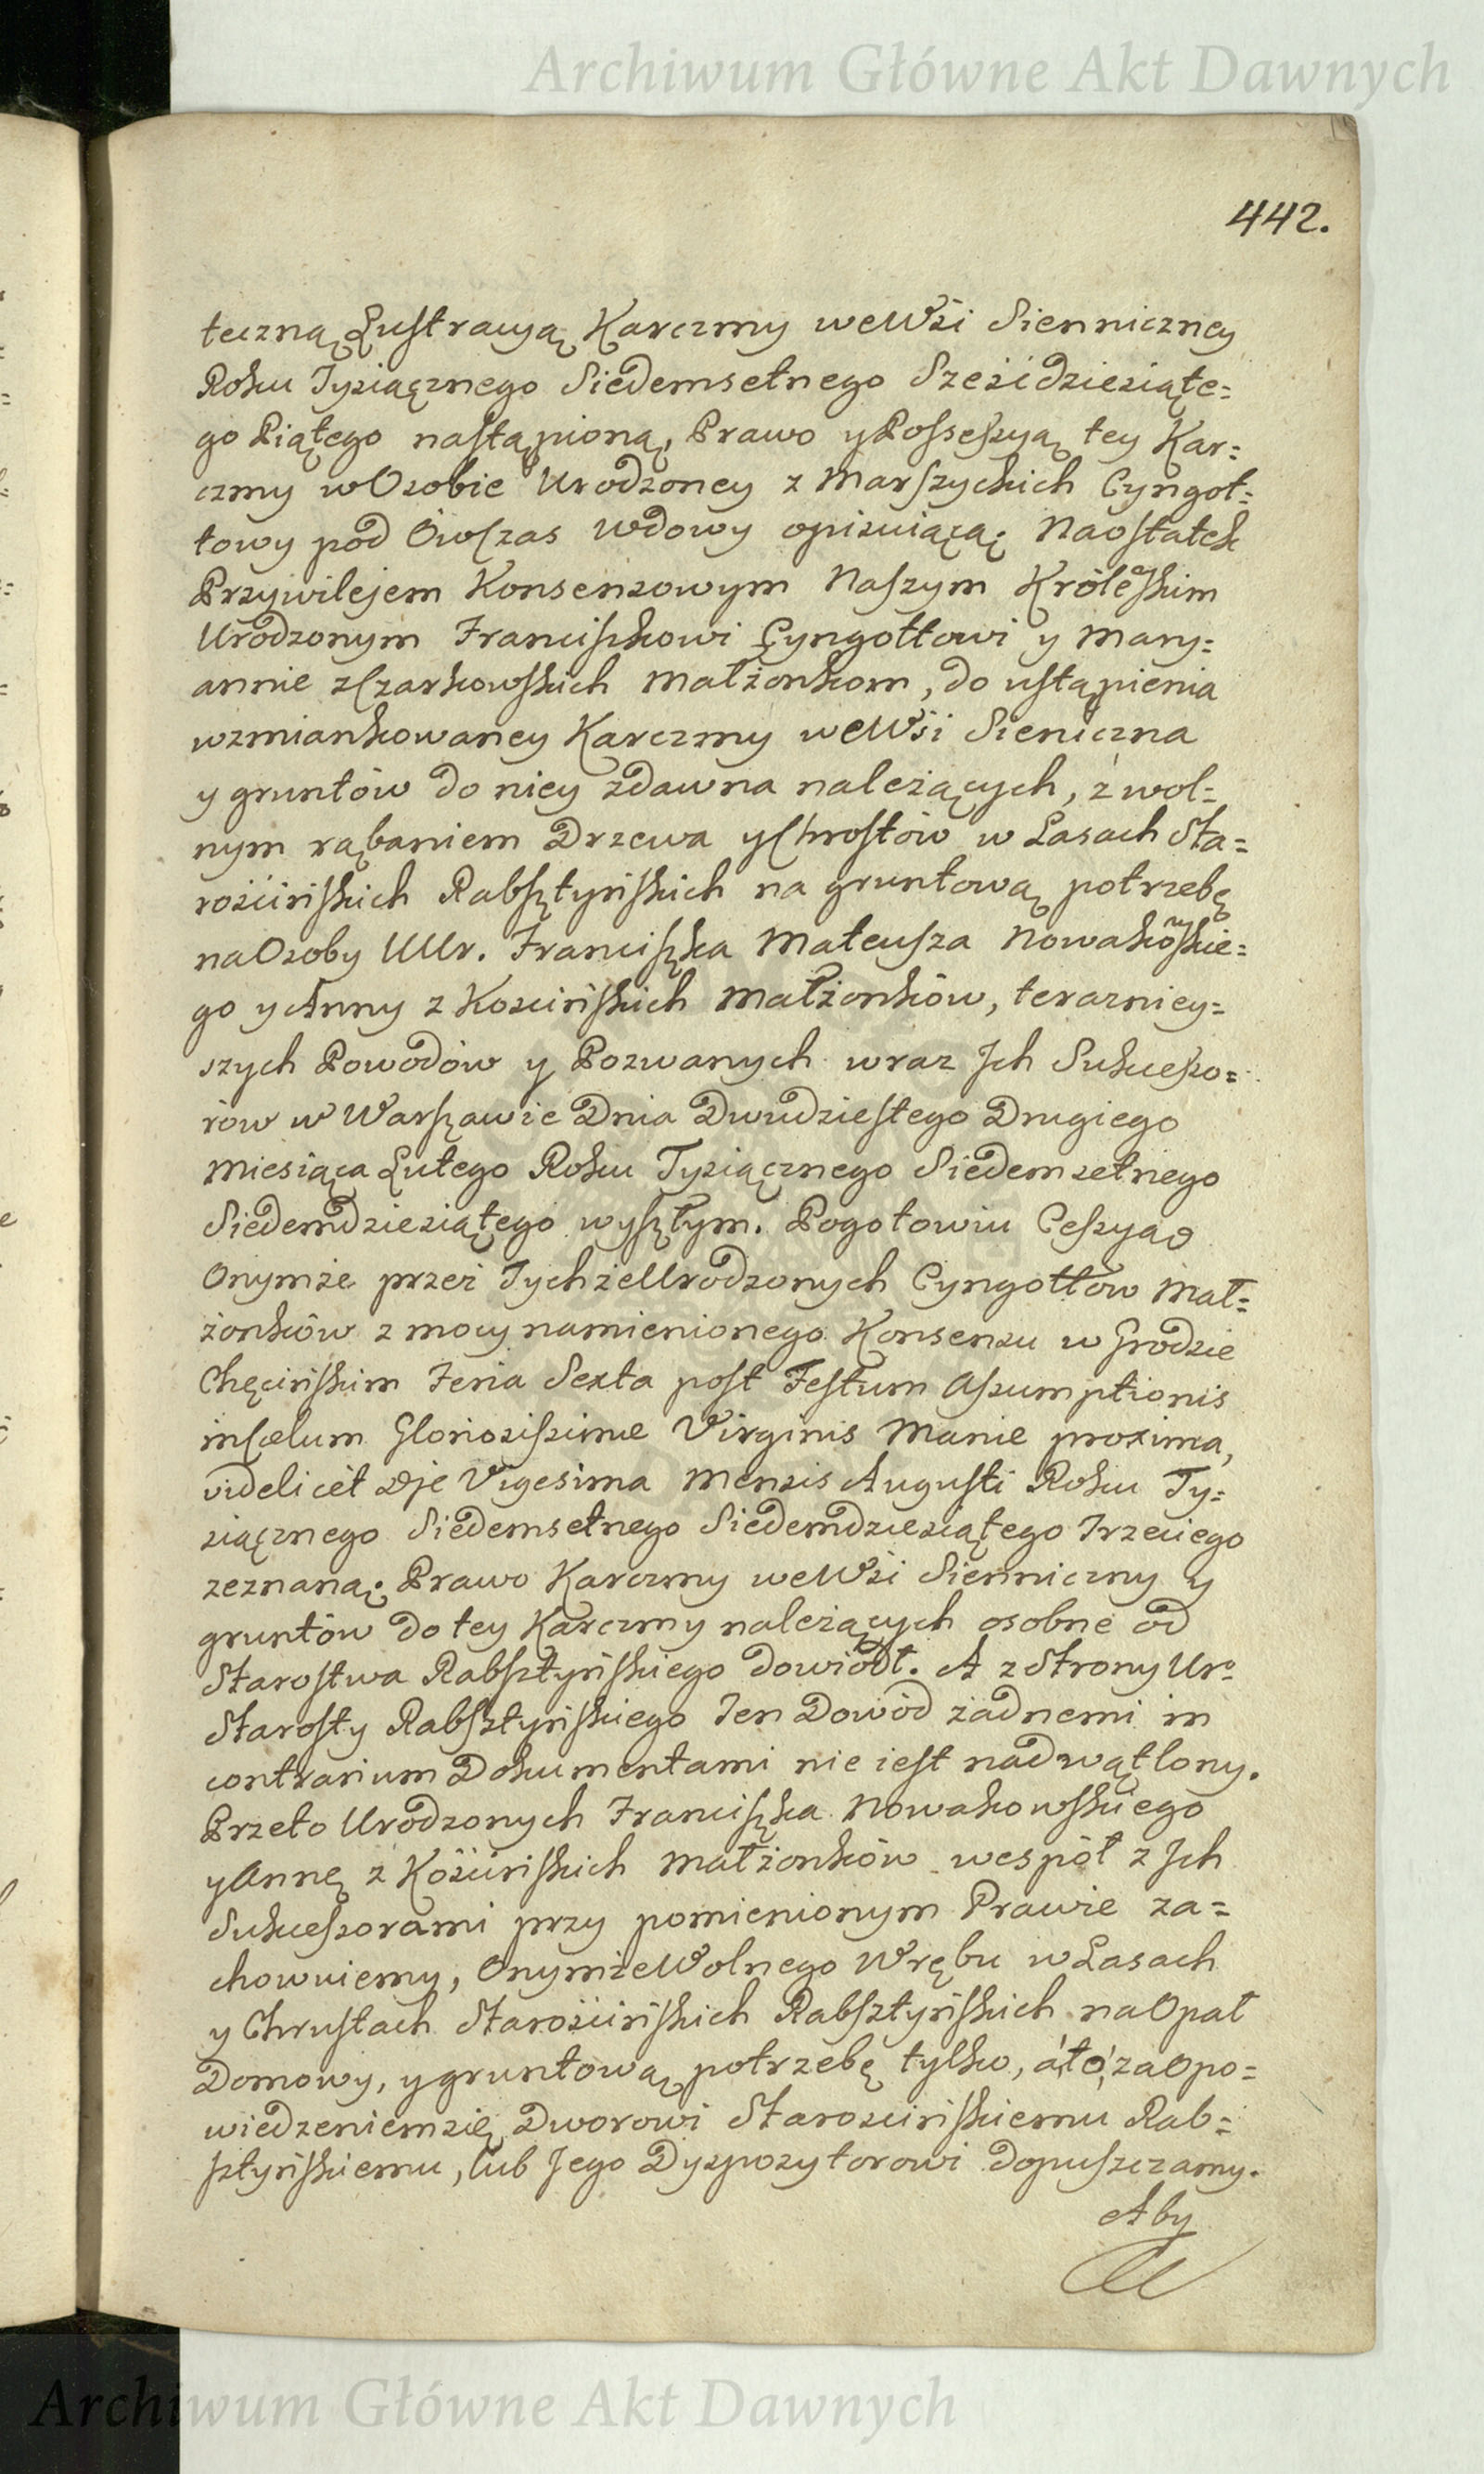 Archiwum Główne Akt Dawnych
442.
teczną Lustracyą Karczmy weWsi Sienniczney
Roku Tysiącznego Siedemsetnego Sześćdziesiąte=
go Piątego nastąpioną, Prawo y Possessyą tey Kar=
czmy w Osobie Urodzoney z Marszyckich Cyngot=
towy pod Owszas Wdowy opisuiącą; Naostatek
Przywilejem Konsensowym Naszym Królewskim
Urodzonym Franciszkowi Cyngottowi y Mary=
annie z Czarkowskich Małżonkom, do ustąpienia
wzmiankowaney Karczmy weWsi Sieniczna
y gruntów do niey zdawna należących, z wol=
nym rąbaniem Drzewa y Chrostów w Lasach Sta=
rościńskich Rabsztyńskich na gruntową potrzebę
na Osoby UUr. Franciszka Mateusza Nowakowskie=
go y Anny z Kościńskich Małżonków, terazniey=
szych Powodów y Pozwanych wraz Ich Sukcesso=
rów w Warszawie Dnia Dwudziestego Drugiego
Miesiąca Lutego Roku Tysiącznego Siedemsetnego
Siedemdziesiątego wyszłym. Pogotowiu Cessyą
Onymże przez TychżeUrodzonych Cyngottów Mał=
żonków z mocy namienionego Konsensu w Grodzie
Chęcińskim Feria Sexta post Festum Assumptionis
in Cœlum Gloriosissimæ Virginis Mariæ proxima,
videlicèt Die Vigesima Mensis Augusti Roku Ty=
siącznego Siedemsetnego Siedemdziesiątego Trzeciego
zeznaną; Prawo Karczmy weWsi Sienniczny y
gruntów do tey Karczmy należących osobne od
Starostwa Rabsztyńskiego dowiódł. A z Strony Uro
Starosty Rabsztyńskiego Ten Dowód żadnemi in
contrarium Dokumentami nie iest nadwątlony.
Przeto Urodzonych Franciszka Nowakowskiego
y Annę z Kościńskich Małżonków wespół z Ich
Sukcessorami przy pomienionym Prawie za=
chowuiemy, OnymżeWolnego Wrębu w Lasach
y Chrustach Starościńskich Rabsztyńskich na Opał
Domowy, y gruntową potrzebę tylko, á to za Opo=
wiedzeniem się Dworowi Starościńskiemu Rab=
sztyńskiemu, lub Jego Dyspozytorowi dopuszczamy.
Aby
Archiwum Główne Akt Dawnych